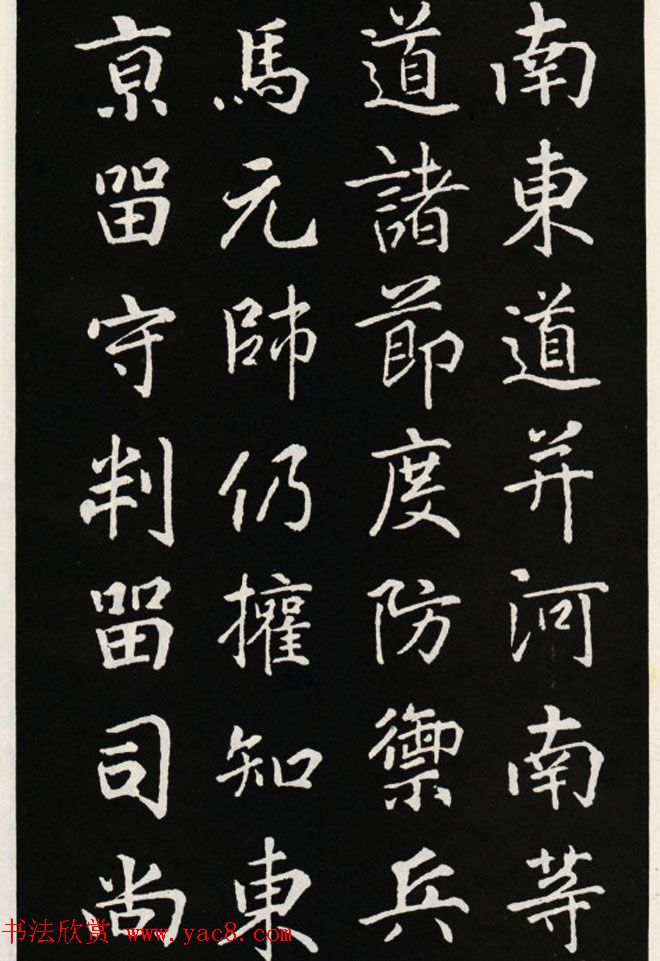 南東道并河南等
道諸節度防禦兵
馬元帥仍權知東
京留守判留司尚
书法欣赏 www.yac8.com